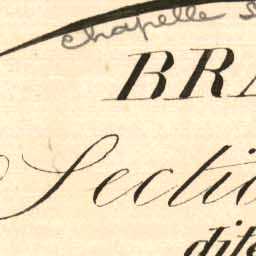 chapelle S
BRA
Sectio
dite